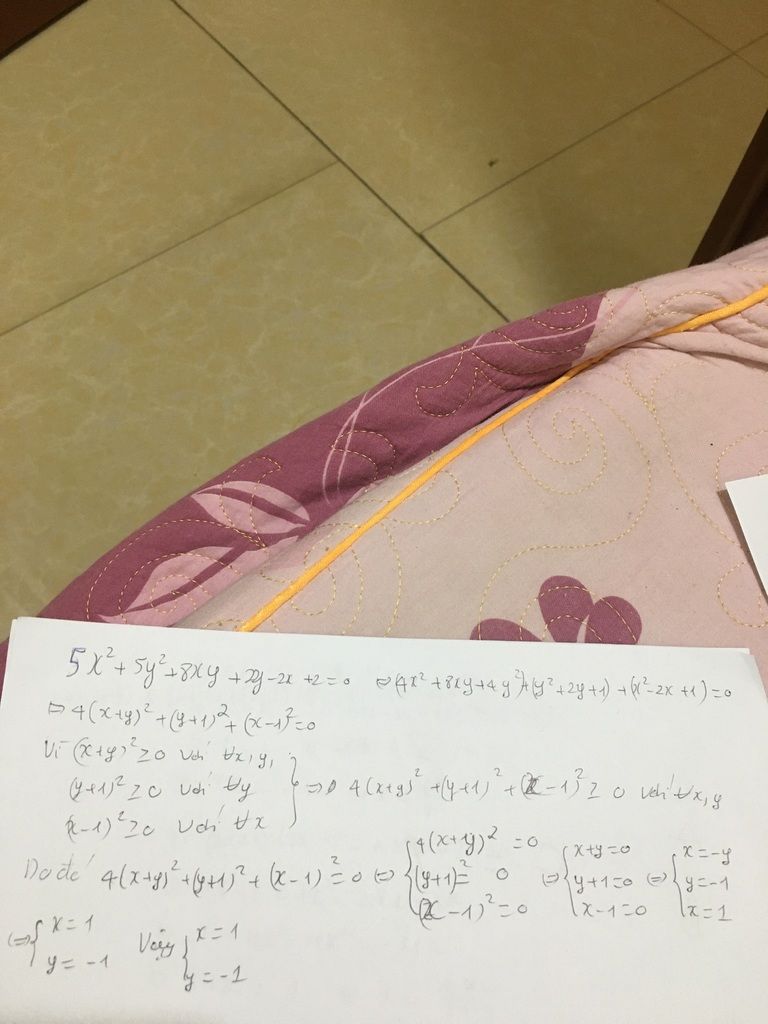 5x² + 5y² + 8xy + 2y - 2x + 2 = 0 ⇔ (4x² + 8xy + 4y²) + (y² + 2y + 1) + (x² - 2x + 1) = 0
⇔ 4(x+y)² + (y+1)² + (x-1)² = 0
Vì (x+y)² ≥ 0 với ∀x, y,
(y+1)² ≥ 0 với ∀y
(x-1)² ≥ 0 với ∀x
⇒ 4(x+y)² + (y+1)² + (x-1)² ≥ 0 với ∀x, y
Do đó 4(x+y)² + (y+1)² + (x-1)² = 0 ⇔ { 4(x+y)² = 0 ⇔ { x+y=0 ⇔ { x=-y
(y+1)² = 0 y+1=0 y=-1
(x-1)² = 0 x-1=0 x=1
⇔ { x=1 Vậy { x=1
y=-1 y=-1